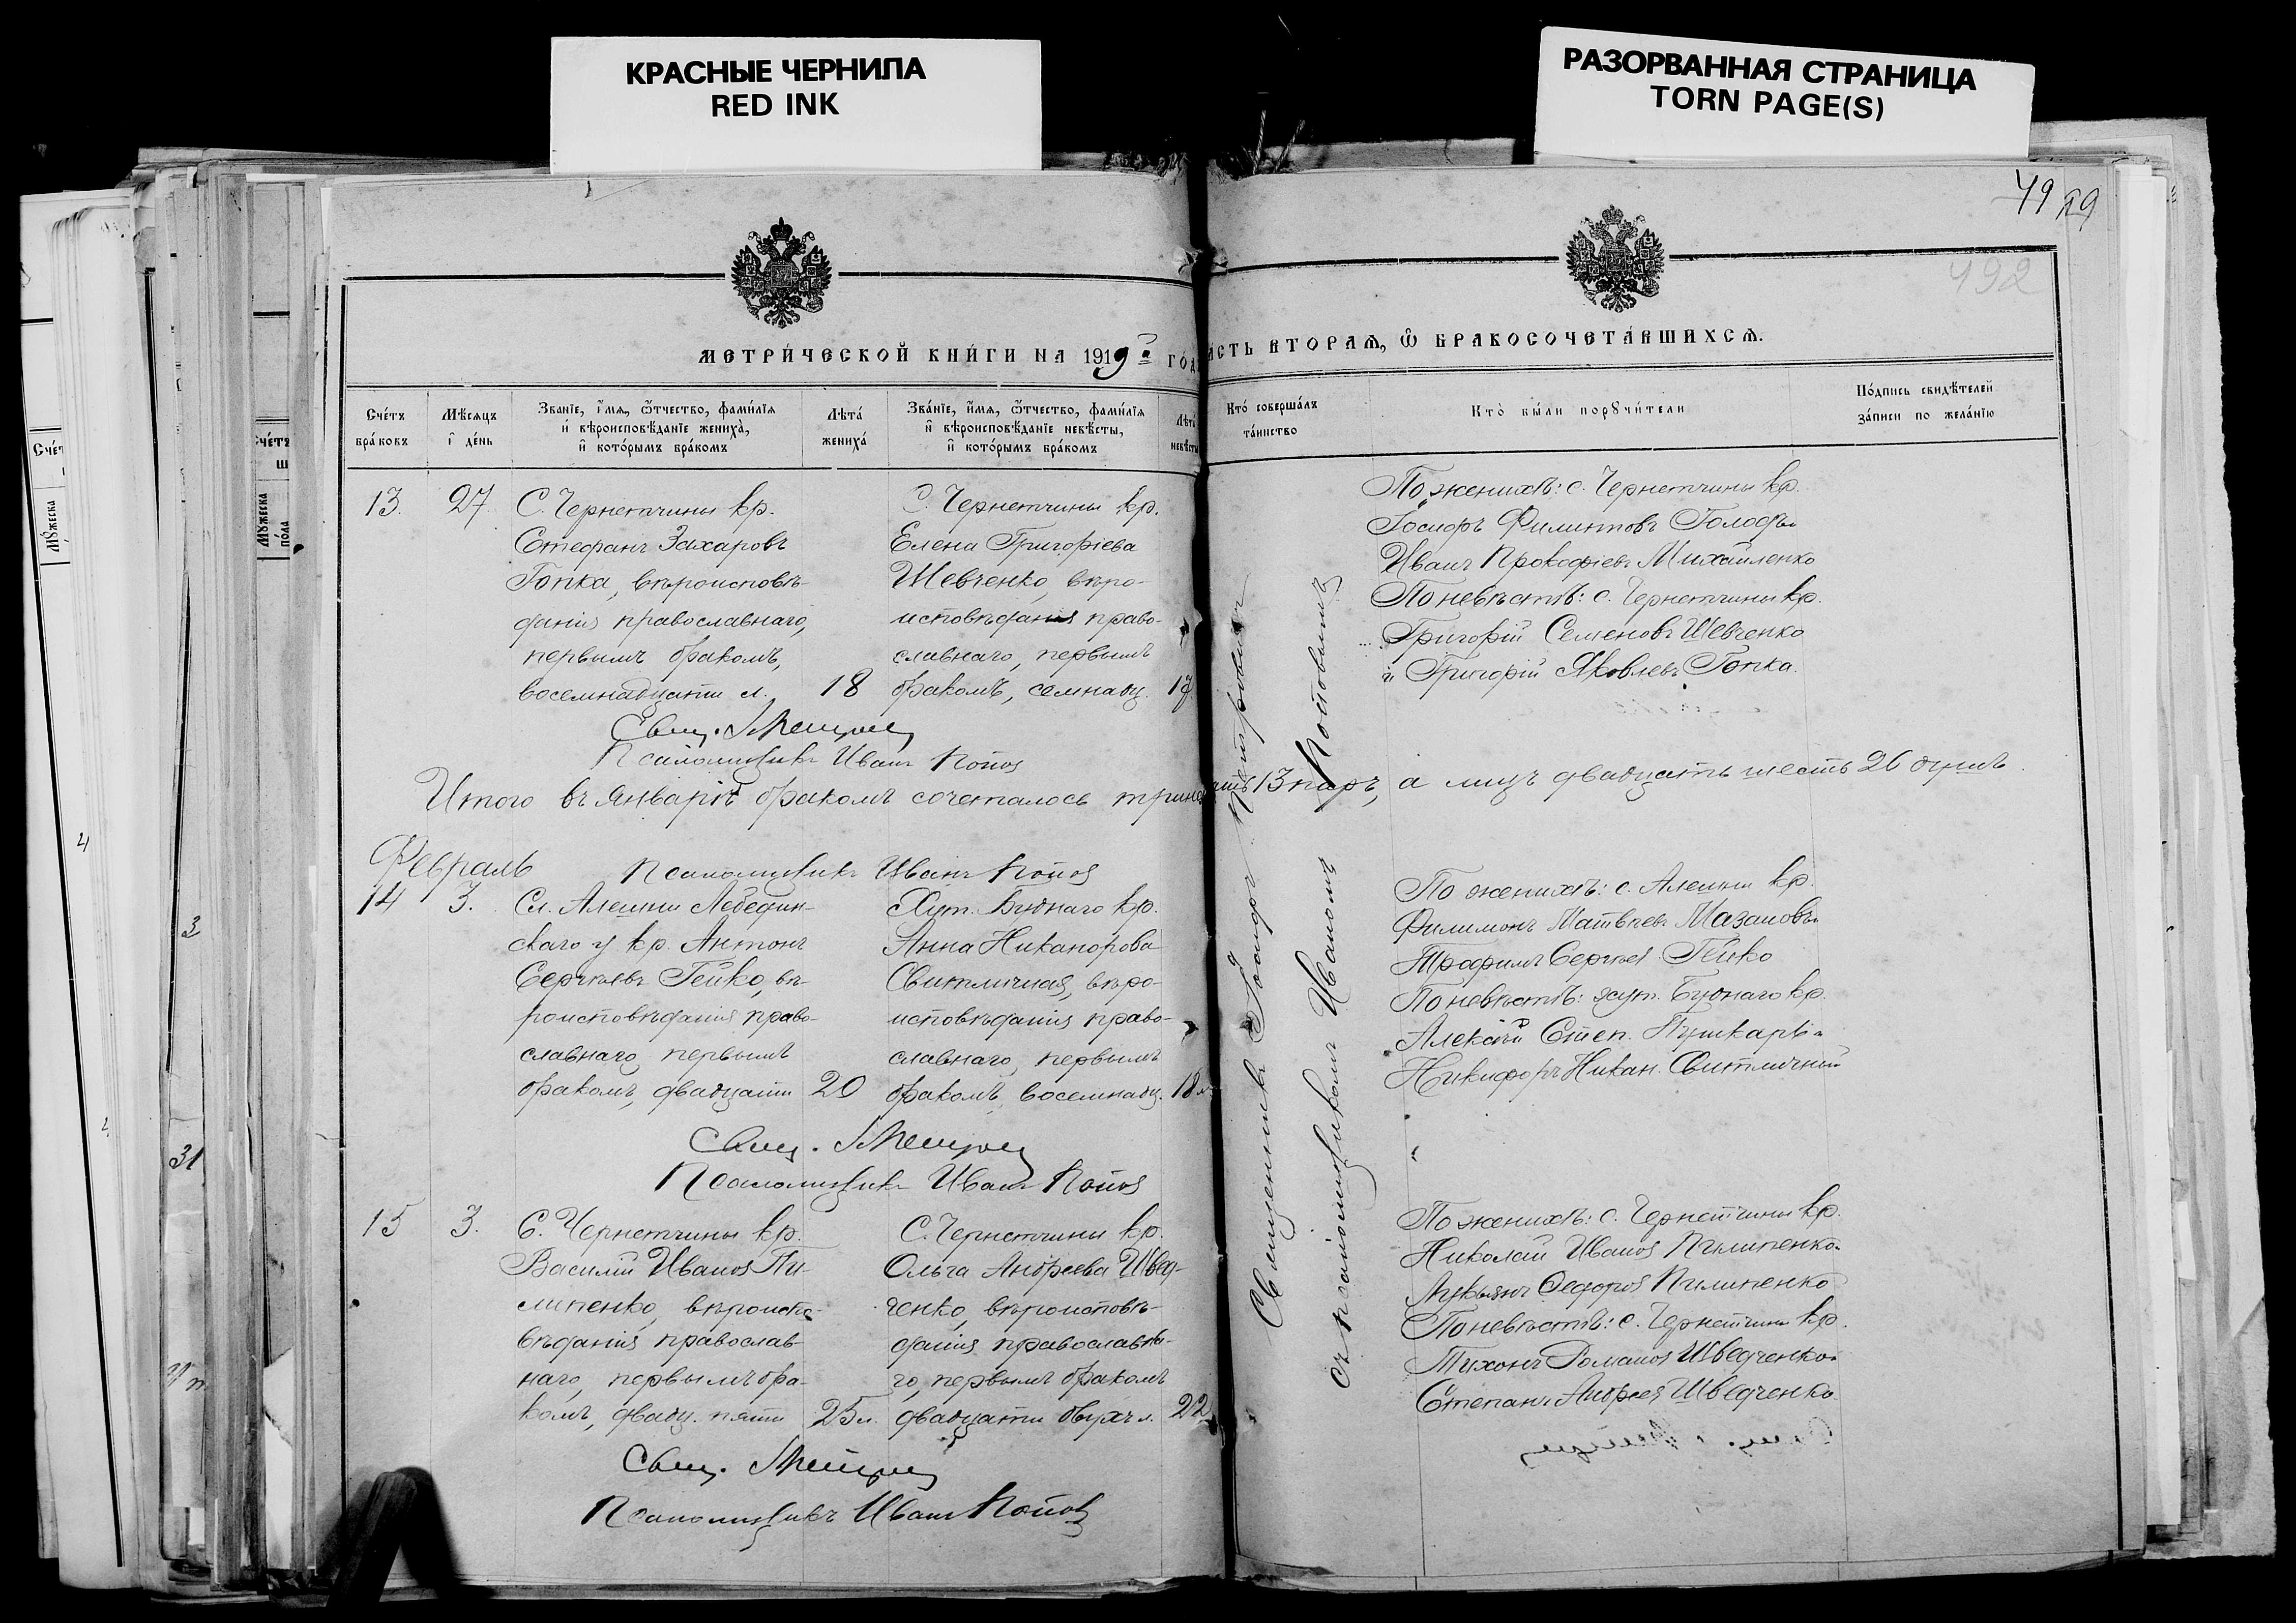 КРАСНЫЕ ЧЕРНИЛА
RED INK
РАЗОРВАННАЯ СТРАНИЦА
TORN PAGE(S)
49
492
МЕТРИ́ЧЕСКОЙ КНИ́ГИ НА 1919 ГО́Д
ÁСТЬ ВТОРАѦ, Ѿ БРАКОСОЧЕТА́ВШИХСѦ.
Сче́тъ бра́ковъ
Мѣ́сяцъ и҆ де́нь
Зва́нїе, и҆́мя, ѻ҆́тчество, фами́лїя и҆ вѣроисповѣ́данїе жениха̀, и҆ кото́рымъ бра́комъ
Лѣта̀ жениха̀
Зва́нїе, и҆́мя, ѻ҆́тчество, фами́лїя и҆ вѣроисповѣ́данїе невѣ́сты, и҆ кото́рымъ бра́комъ
Лѣта̀ невѣ́сты
Кто̀ соверша́лъ та́инство
Кто̀ бы́ли порꙋчи́тели
По́дпись свидѣ́телей за́писи по жела́нїю
13. 27
С. Чернетчины кр.
Стефанъ Захаровъ
Гопка, вѣроисповѣ-
данія православнаго,
первымъ бракомъ,
восемнадцати л. 18
С. Чернетчины кр.
Елена Григоріева
Шевченко, вѣро-
исповѣданія право-
славнаго, первымъ
бракомъ, семнадц. 17
По женихѣ: с. Чернетчины кр.
Іосифъ Филиповъ
Иванъ Прокофіевъ Михайленко
По невѣстѣ: с. Чернетчины кр.
Григорій Семеновъ Шевченко
и Григорій Яковлевъ Гопка.
Свящ.
Псаломщикъ Иванъ Попов
Итого въ Январѣ бракомъ сочеталось 13 паръ, а лицъ двадцать шесть 26 душъ
Февраль
Псаломщикъ Иванъ Попов
14 3.
Сл. Алешни Лебедин-
скаго у кр. Антонъ
Сергѣевъ Гейко, вѣ-
роисповѣданія право-
славнаго первымъ
бракомъ, двадцати 20
Хут. Буднаго кр.
Анна Никанорова
Свитличная, вѣро-
исповѣданія право-
славнаго, первымъ
бракомъ восемнадц. 18
По женихѣ: с. Алешни кр.
Филимонъ Матвѣев
Трофимъ Сергѣев Гейко
По невѣстѣ: хут. Буднаго кр.
Алексѣй Степ. Пушкарь
Никифоръ Никан. Свитличный
Свящ.
Псаломщикъ Иванъ Попов
15 3.
С. Чернетчины кр.
Василій Иванов Пи-
липенко, вѣроиспо-
вѣданія православ-
наго, первымъ бра-
комъ, двадц. пяти 25 л.
С. Чернетчины кр.
Ольга Андреева Швед-
ченко, вѣроисповѣ-
данія православна-
го, первымъ бракомъ
двадцати двухъ л. 22
По женихѣ: с. Чернетчины кр.
Николай Иванов Пилипенко
Лукьянъ Федоров Пилипенко
По невѣстѣ: с. Чернетчины кр.
Тихонъ Романов Шведченко
Степанъ Андреев Шведченко
Свящ.
Псаломщикъ Иванъ Поповъ
Священникъ Іоаннъ
съ псаломщикомъ Иваномъ Поповымъ
Сче́т
Мꙋжеска
Мꙋжеска по́ла
4
3
31